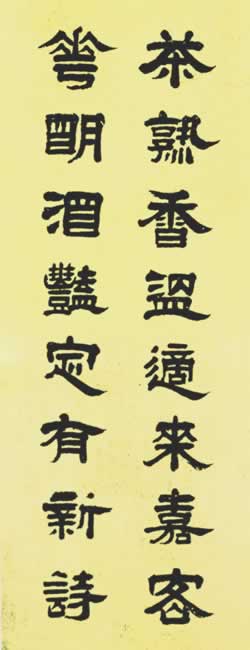 茶熟香溫適來嘉客
華明酒豔定有新詩